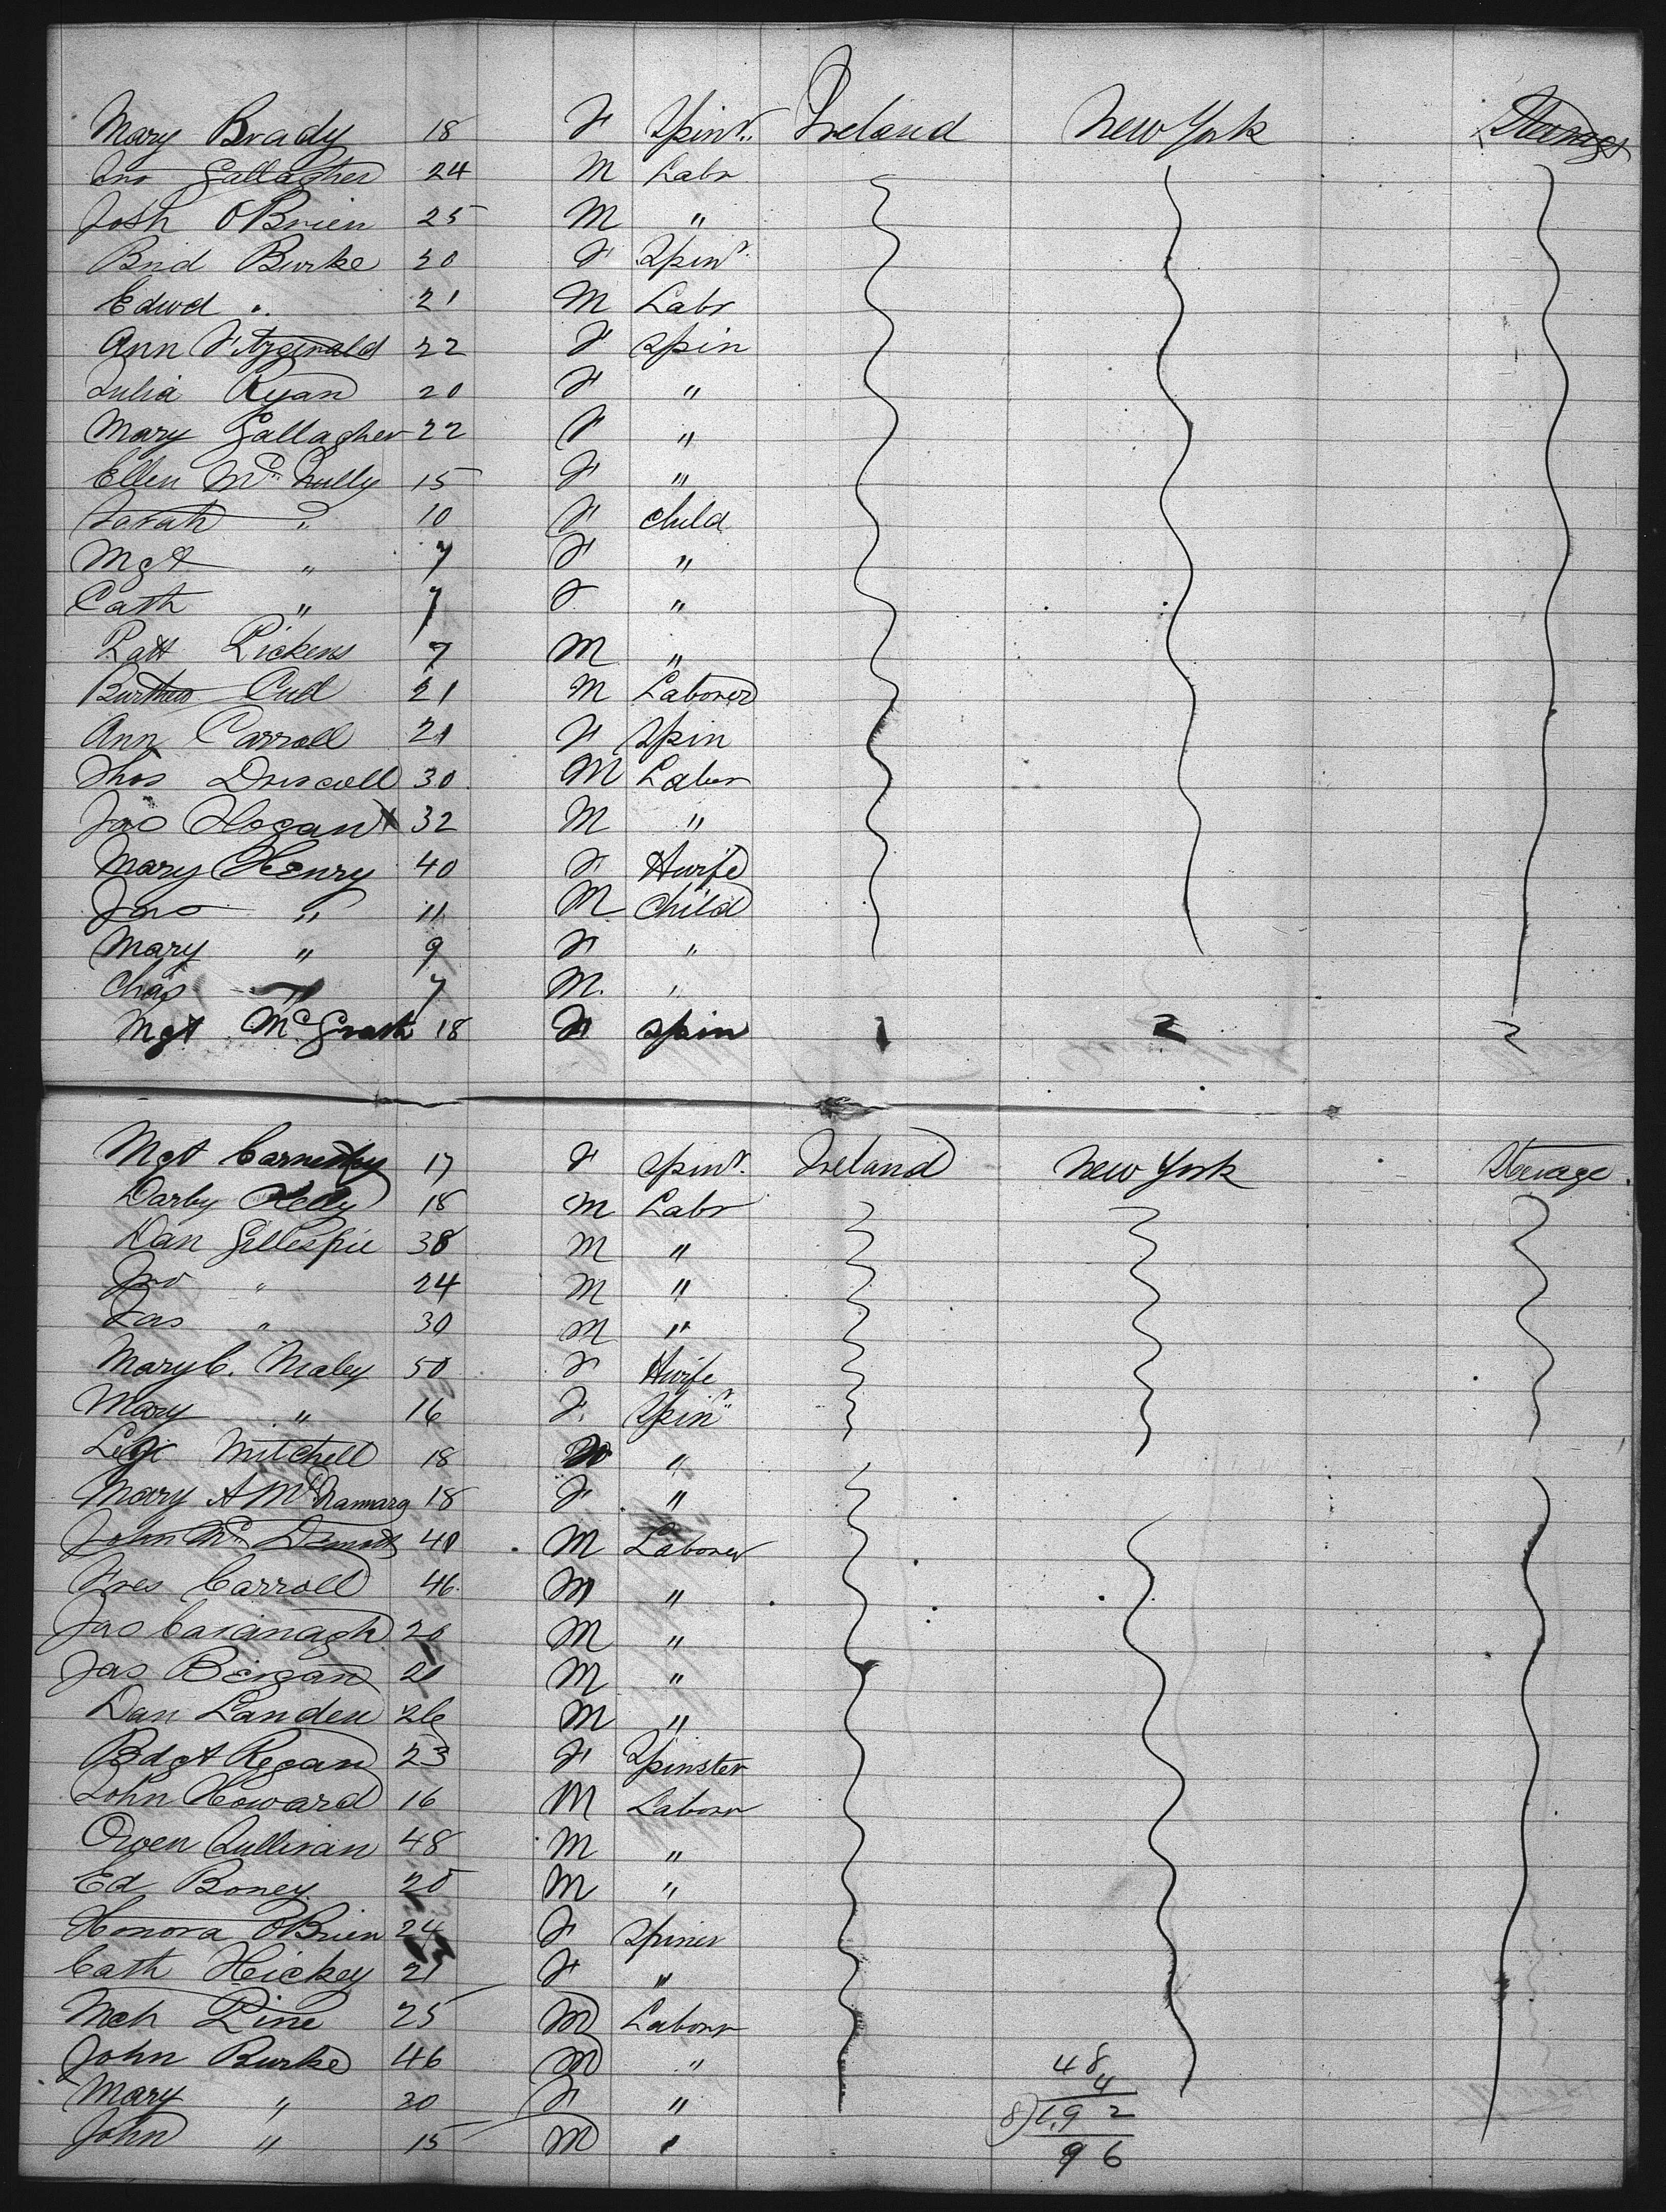 Mary Brady 18 F Spinr. Ireland New York Steerage
Jno Gallagher 24 M Labr
Josh O'Brien 25 M "
Brid Burke 20 F Spinr
Edwd " 21 M Labr
Ann Fitzgerald 22 F Spin
Julia Ryan 20 F "
Mary Gallagher 22 F "
Ellen McNully 15 F "
Sarah " 10 F Child
Mgt " 7 F "
Cath " 7 F "
Patt Pickens 7 M "
Cull 21 M Laborer
Ann Carroll 21 F Spin
Thos Driscoll 30 M Labor
Jno Hogan x 32 M "
Mary Henry 40 F Hwife
Jno " 11 M Child
Mary " 9 F "
Chas " 7 M "
Mgt McGrath 18 F Spin
Mgt 17 F Spinr. Ireland New York Steerage
Darby Kelly 18 M Labr
Dan Gillespie 38 M "
Jno " 24 M "
Jas " 30 M "
Mary C. Maley 50 F Hwife
Mary " 16 F. Spinr
Mitchell 18 "
Mary A McNamara 18 F "
John McDemott 40 M Laborer
Fres Carroll 46 M "
Jno Cavanagh 26 M "
Jas Bergan 21 M "
Dan Landen 26 M "
Bdgt Regan 23 F Spinster
John Howard 16 M Laborr
Owen Sullivan 48 M "
Ed Boney 20 M "
Honora O'Brien 24 F Spiner
Cath Hickey 21 F "
Mch Pine 25 M Laborr
John Burke 46 M " 48
Mary " 20 F " 4
John " 15 M " 8)1,92
96